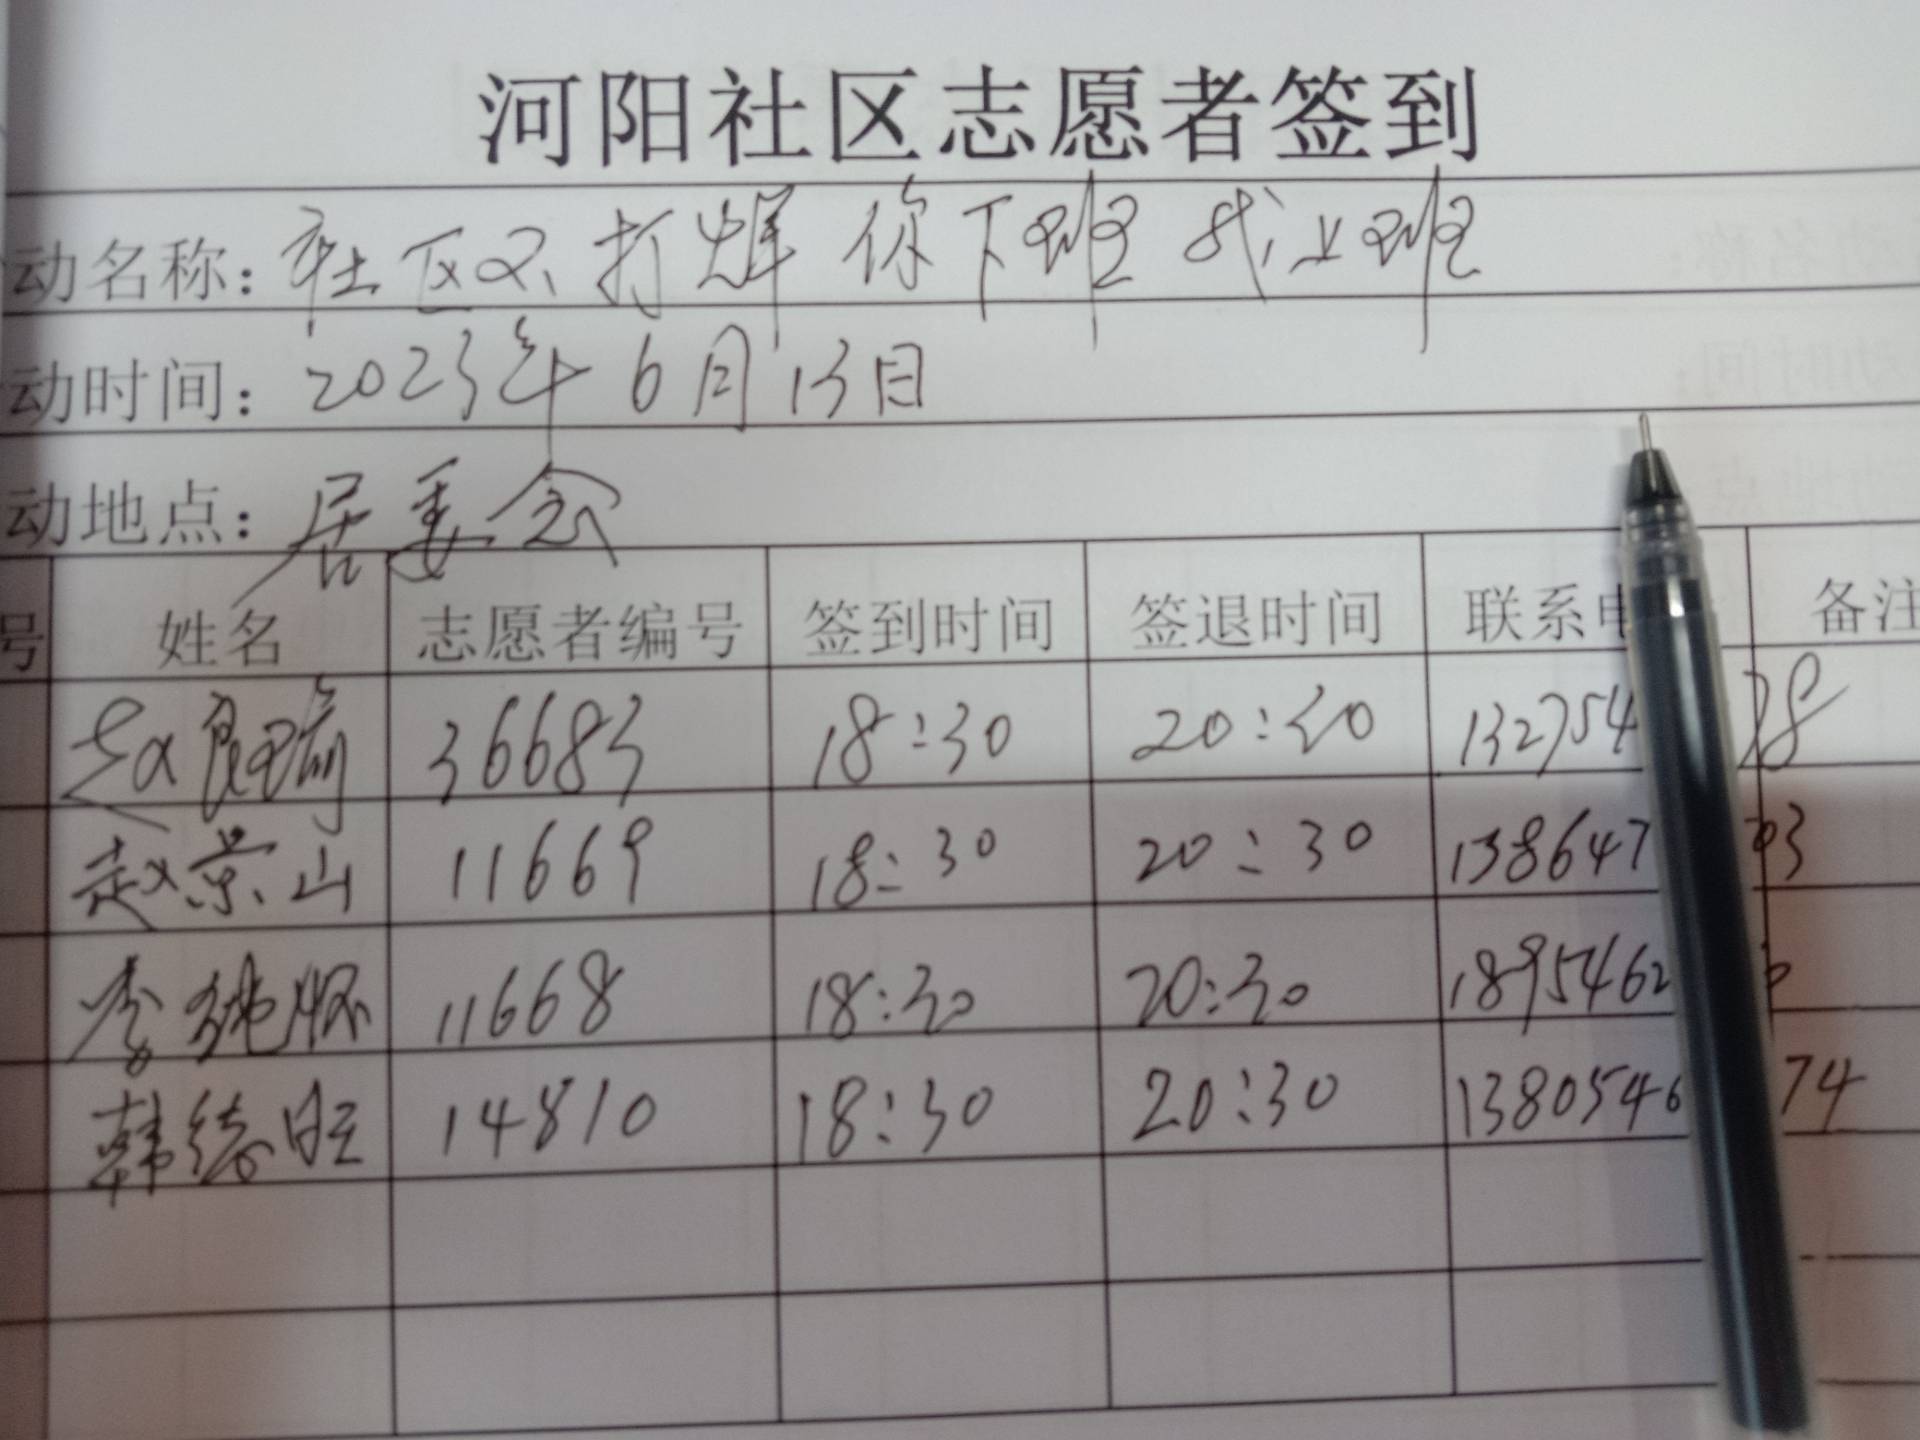 河阳社区志愿者签到
动名称：社区不打烊 你下班 我上班
动时间：2023年6月13日
动地点：居委会
号 姓名 志愿者编号 签到时间 签退时间 联系电 备注
赵良瑜 36683 18:30 20:30 132754 38
赵京山 11669 18:30 20:30 138647 03
李纯怀 11668 18:30 20:30 1895462
韩德旺 14810 18:30 20:30 1380546 74